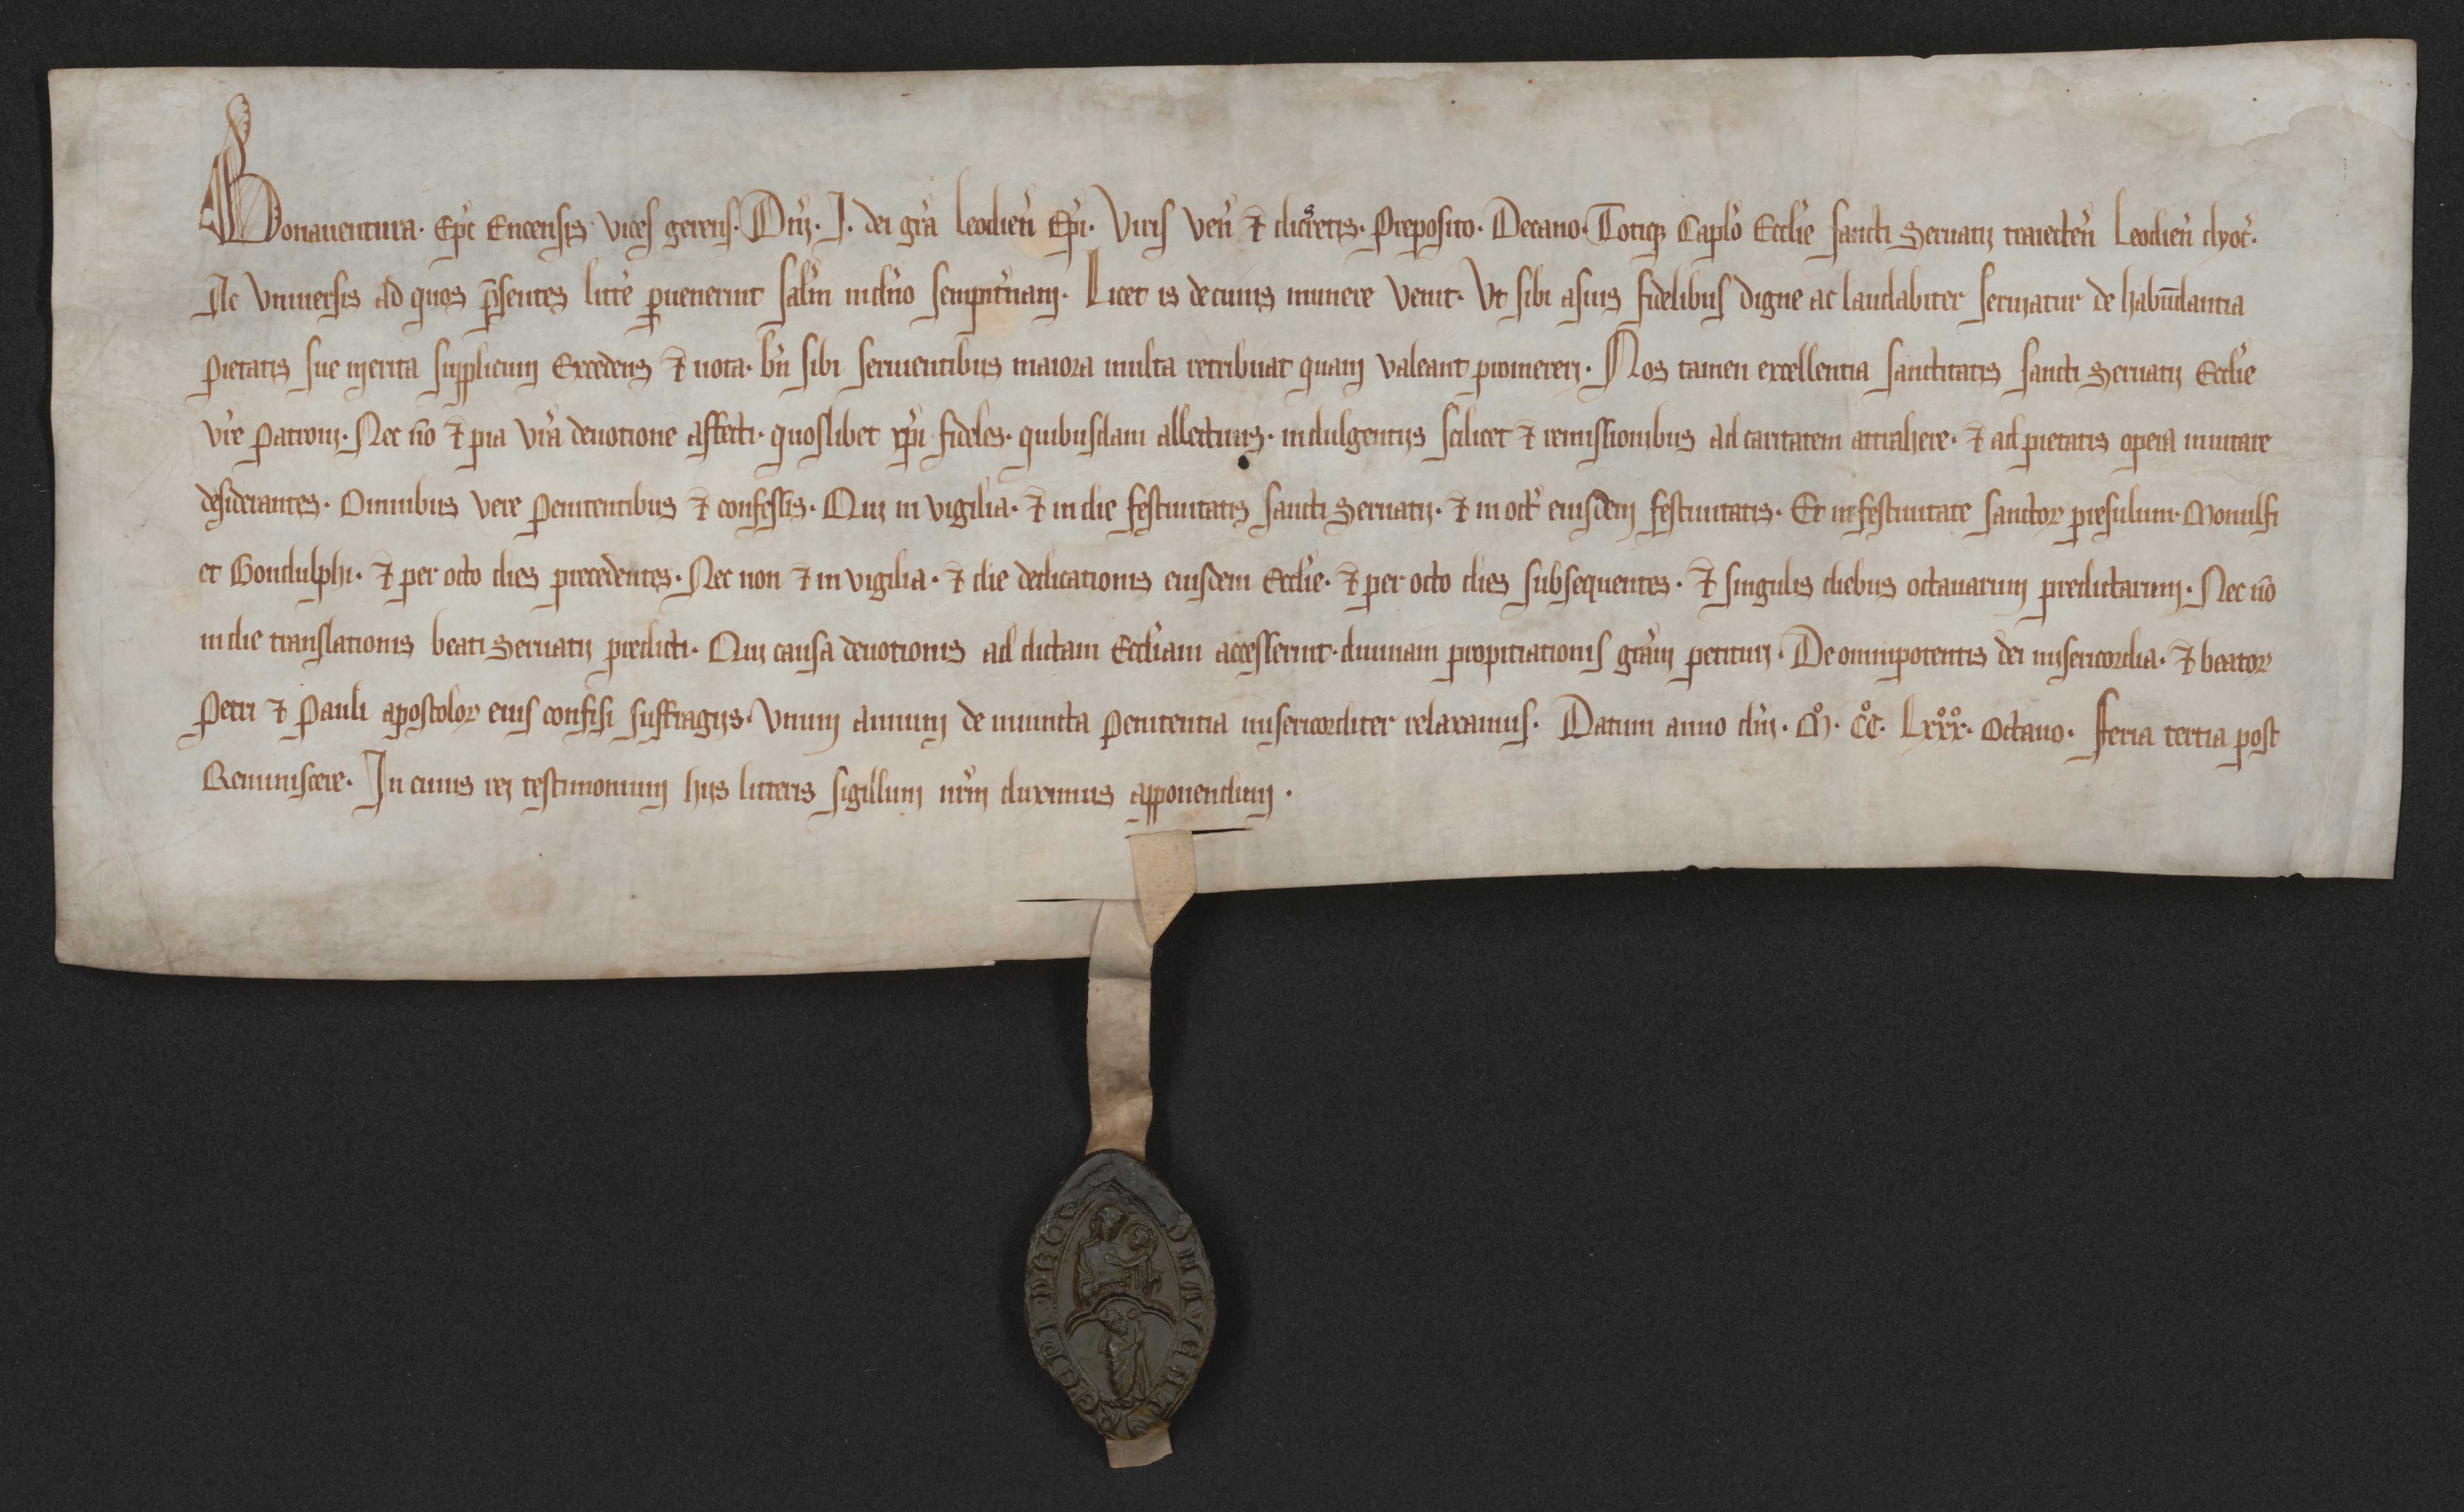 Bonauentura. Ep̄c Encensis vices gerens. Dn̄i. J. dei gr̄a leodien̄ Ep̄i. Viris ven̄ ⁊ discretis. Preposito. Decano. Totiq; Cap̄lo Eccl̄ie sancti Seruatij traiecten̄ Leodien̄ dyoc̄.
Ac Vniuersis ad quos p̄sentes litt̄e puenerint sal̄m in dn̄o sempit̄nam. Licet is de cuius munere venit. Vt sibi a suis fidelibus digne ac laudabiter seruiatur de habūdantia
pietatis sue merita supplicum Excedens ⁊ uota. bn̄ sibi seruientibus maiora multa retribuat quam valeant promereri. Nos tamen excellentia sanctitatis sancti Seruatij Eccl̄ie
vr̄e Patroni. Nec nō ⁊ pia vr̄a deuotione affecti. quoslibet xp̄i fideles. quibusdam allectiuis. indulgentijs scilicet ⁊ remissionibus ad caritatem attrahere. ⁊ ad pietatis opera inuitare
desiderantes. Omnibus vere penitentibus ⁊ confessis. Qui in vigilia. ⁊ in die festiuitatis sancti Seruatij. ⁊ in oct̄ eiusdem festiuitatis. Et in festiuitate sanctoꝝ presulum. Monulfi
et Gondulphi. ⁊ per octo dies precedentes. Nec non ⁊ in vigilia. ⁊ die dedicationis eiusdem Eccl̄ie. ⁊ per octo dies subsequentes. ⁊ singulis diebus octauarum predictarum. Nec nō
in die translationis beati Seruatij predicti. Qui causa deuotionis ad dictam Eccl̄iam accesserint. diuinam propitiationis gr̄am petituri. De omnipotentis dei misericordia. ⁊ beatoꝝ
Petri ⁊ Pauli apostoloꝝ eius confisi suffragijs. Vnum Annum de iniuncta penitentia misericorditer relaxamus. Datum anno dn̄i. M̊. CC̊. Lxx̊x̊. Octauo. Feria tertia post
Reminiscere. In cuius rei testimonium hijs litteris sigillum nr̄m duximus apponendum.